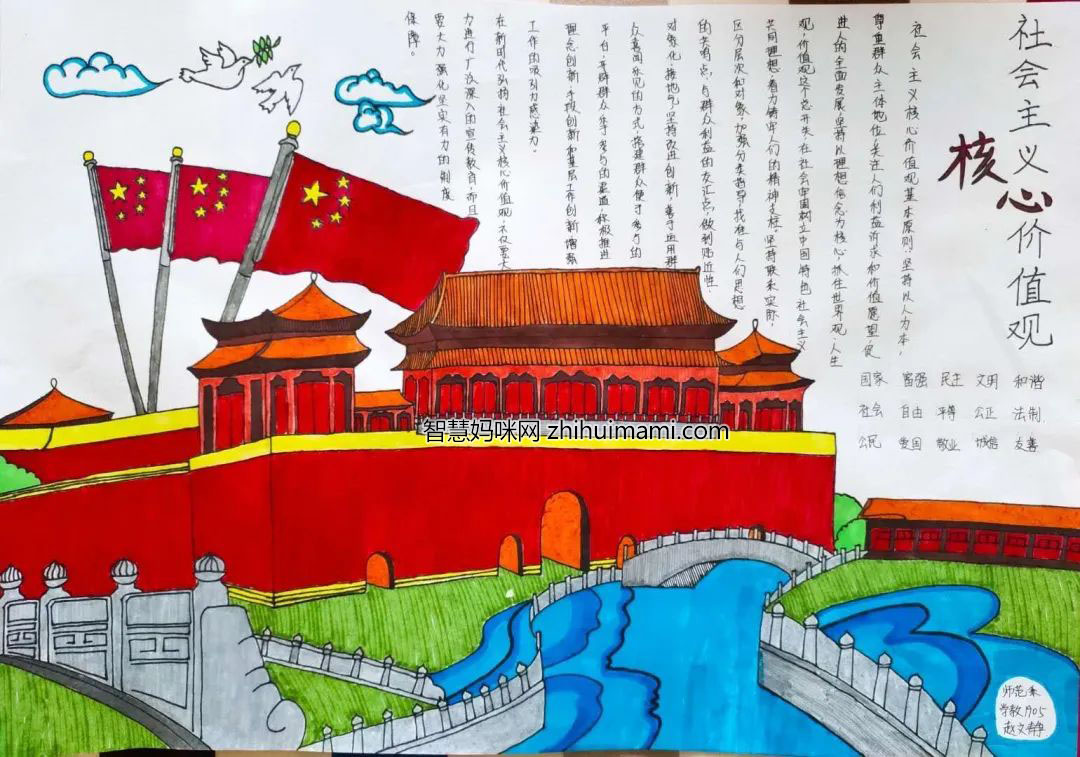 社会主义核心价值观
社会主义核心价值观基本原则:坚持以人为本,
尊重群众主体地位,关注人们利益诉求和价值愿望,促
进人的全面发展;坚持以理想信念为核心,抓住世界观、人生
观、价值观这个总开关,在社会牢固树立中国特色社会主义
共同理想,着力铸牢人们的精神支柱;坚持联系实际,
区分层次和对象,加强分类指导,找准与人们思想
的共鸣点、与群众利益的交汇点,做到贴近性、
对象化、接地气;坚持改进创新,善于运用群
众喜闻乐见的方式,搭建群众便于参与的
平台,开辟群众乐于参与的渠道,积极推进
理念创新、手段创新和基层工作创新,增强
工作的吸引力感染力。
在新时代弘扬社会主义核心价值观,不仅要大
力进行广泛深入的宣传教育,而且
要大力强化坚实有力的制度
保障。
国家 富强 民主 文明 和谐
社会 自由 平等 公正 法制
公民 爱国 敬业 诚信 友善
智慧妈咪网 zhihuimami.com
师范系
学教1905
赵文静